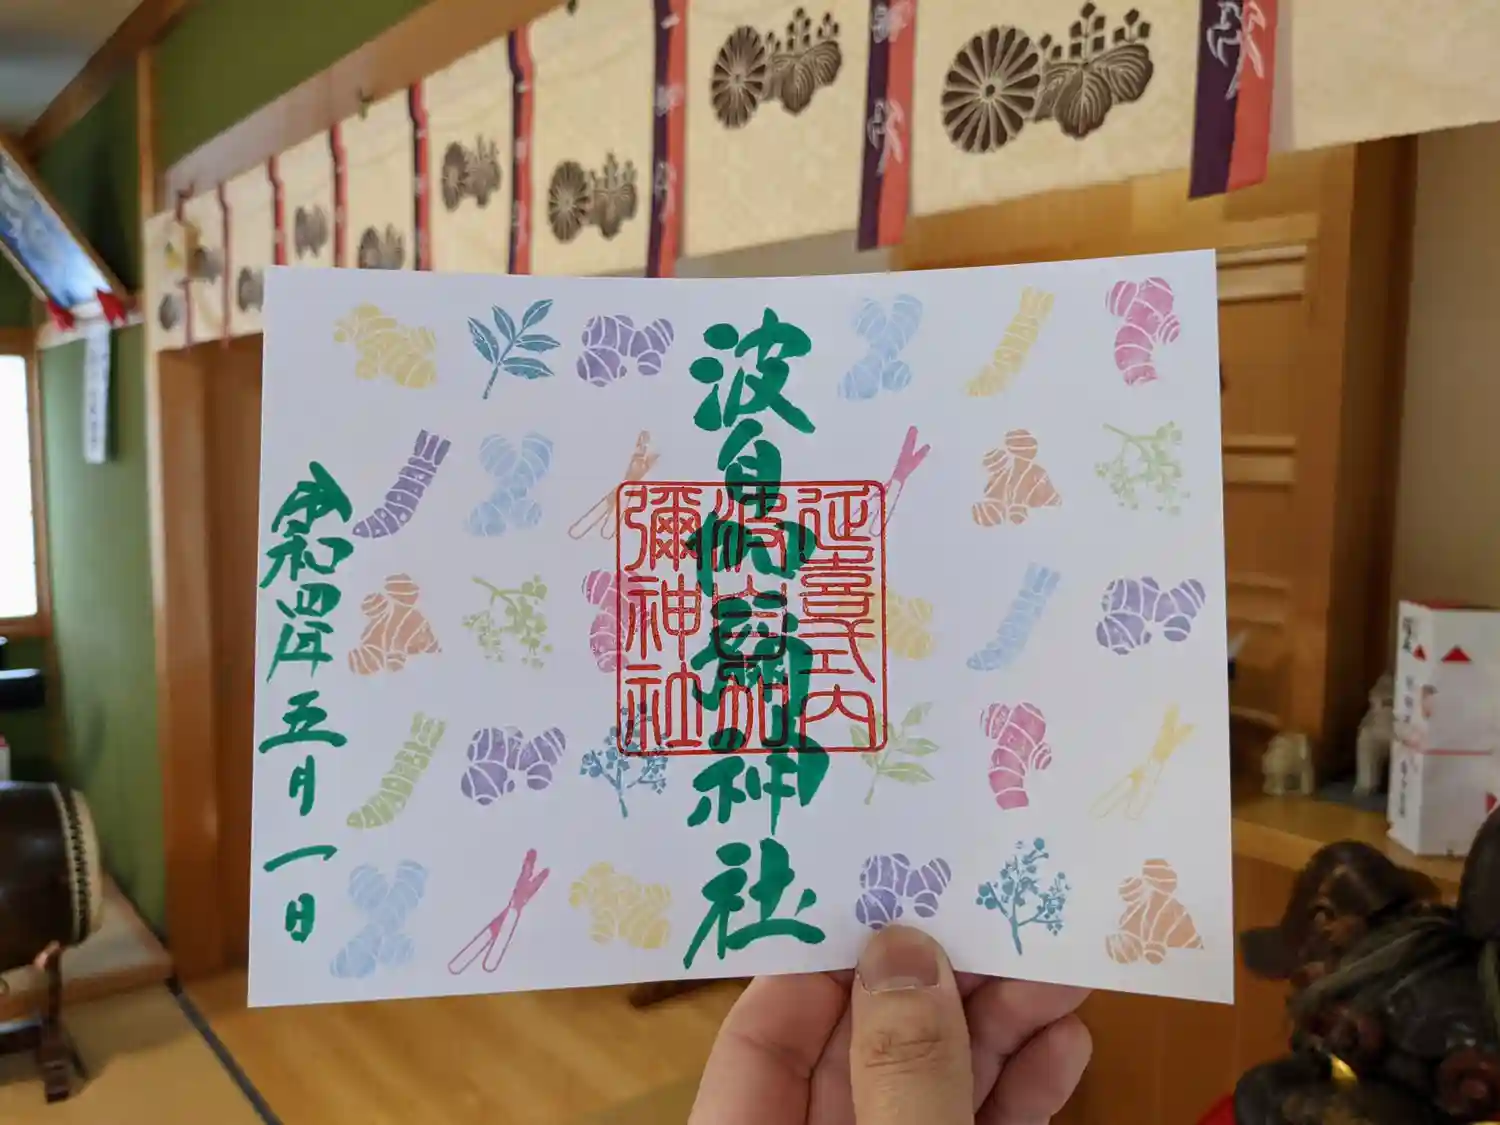 波自加彌神社
延喜式内
波自加
彌神社
令和四年五月一日